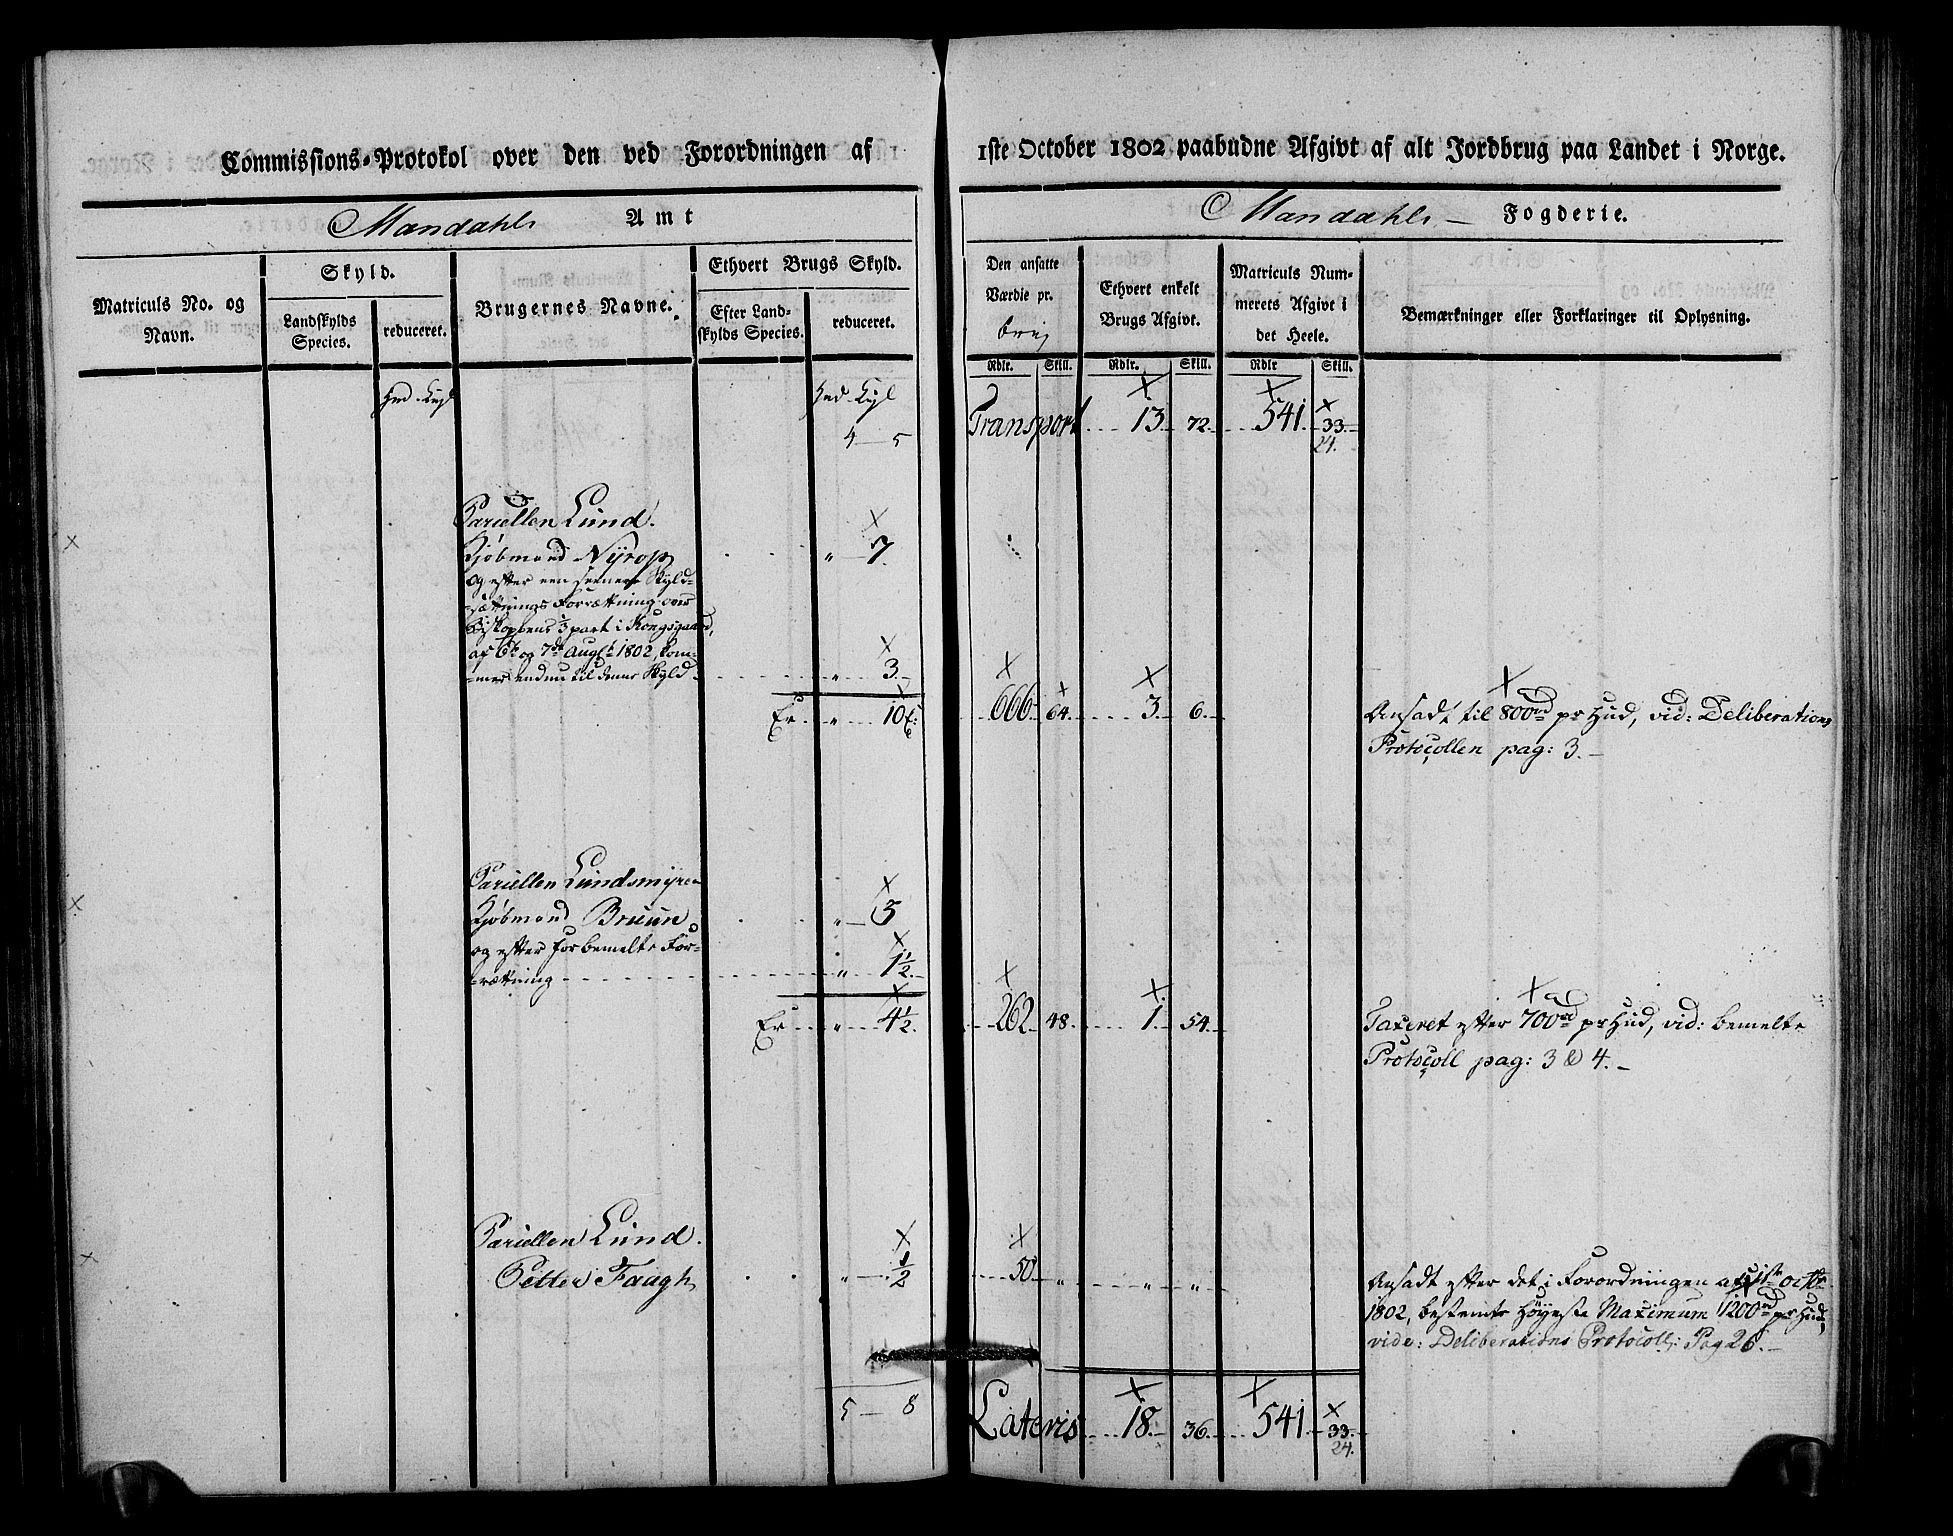 Commissions-Protokol over den ved Forordningen af 1ste October 1802 paabudne Afgivt af alt Jordbrug paa Landet i Norge.
Mandahls Amt
Mandahls Fogderie.
Matriculs No. og Navn.
Skyld.
Landskylds Species.
reduceret.
Brugernes Navne.
Ethvert Brugs Skyld.
Efter Landskylds Species.
reduceret.
Den ansatte Værdie pr.
Ethvert enkelt Brugs Afgivt.
Matriculs Nummerets Afgivt i det Heele.
Bemærkninger eller Forklaringer til Oplysning.
Rdlr. Skill. Rdlr. Skill. Rdlr Skill.
Transport 13. 72. 541. 33.
24.
4 — 5
Parcellen Lund.
Kjøbmand Nÿrop „ 7.
og efter een seenere Skyld-
sættnings Forrættning over
Biskoppens 1/3 part i Kongsgaard,
af 6te og 7de Augst 1802, kom-
mer endnu til denne Skyld „ 3.
Er „ 10 666 64. 3. 6.
Ansadt til 800rd pr Hud, vid: Deliberations
Protocollen pag: 3.
Parcellen Lundsmyren
Kjøbmand Bruun „ 3
og efter forbemelte For-
rættning „ 1 1/2.
Er „ 4 1/2. 262 48. 1. 54.
Taxeret efter 700rd pr Hud, vid: bemelte
Protocoll pag: 3 & 4.
Parcellen Lund.
Petter Faugh „ 1/2 50 „ „ „
Ansadt efter det i Forordningen af 1ste octbr
1802, bestemte høÿeste Maximum 1200rd pr Hud,
vide: Deliberations Protocoll: Pag 26.
5 — 8
Lateris 18. 36. 541. 33.
24.